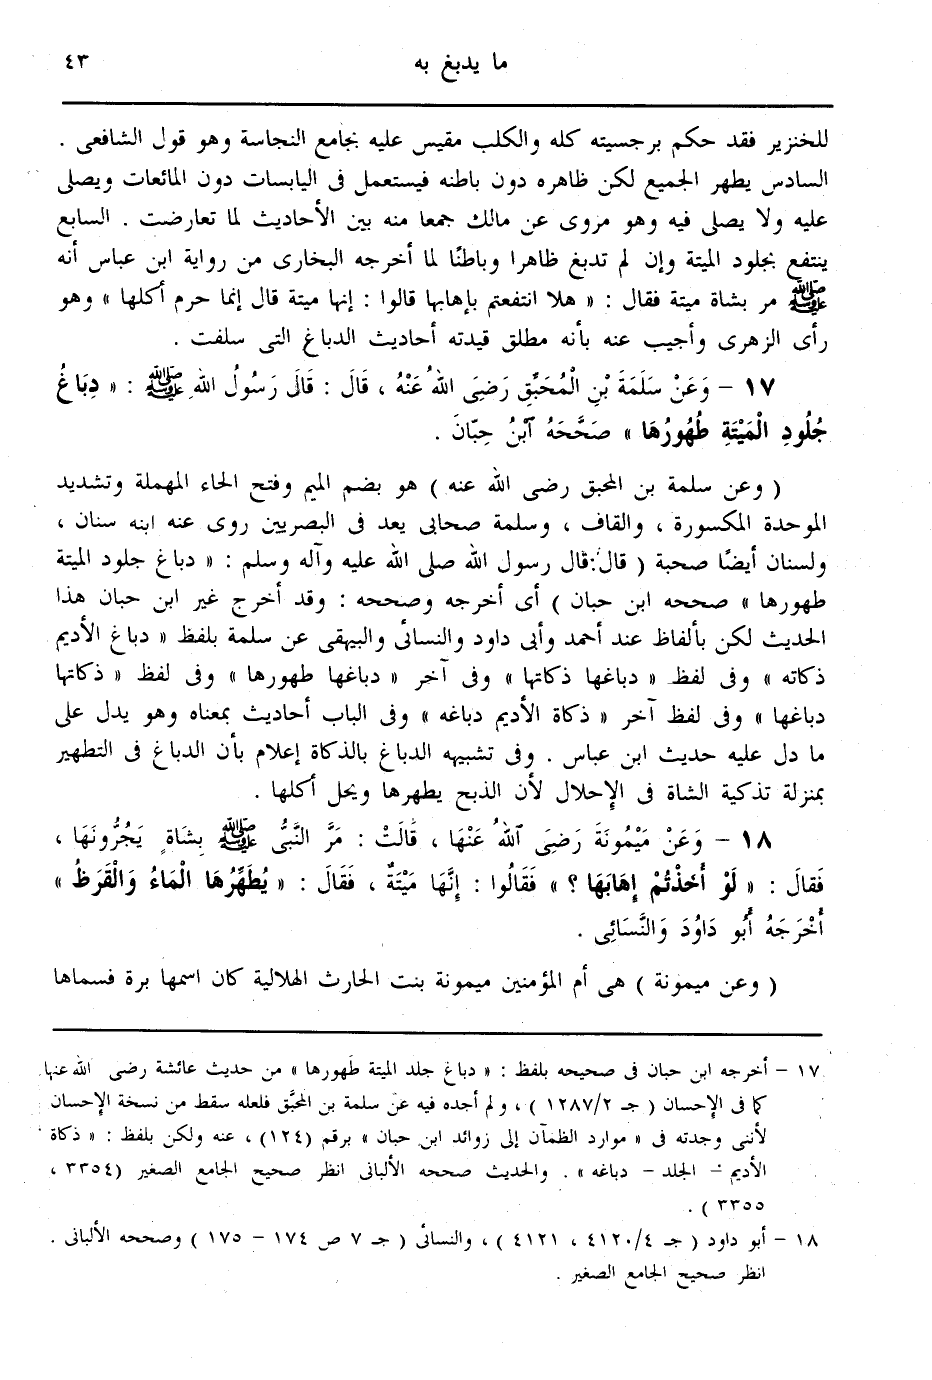 ما يدبغ به
٤٣
للخنزير فقد حكم برجسيته كله والكلب مقيس عليه بجامع النجاسة وهو قول الشافعى .
السادس يطهر الجميع لكن ظاهره دون باطنه فيستعمل فى اليابسات دون المائعات ويصلى
عليه ولا يصلى فيه وهو مروى عن مالك جمعا منه بين الأحاديث لما تعارضت . السابع
ينتفع بجلود الميتة وإن لم تدبغ ظاهرا وباطنًا لما أخرجه البخارى من رواية ابن عباس أنه
ﷺ مر بشاة ميتة فقال : « هلا انتفعتم بإهابها قالوا : إنها ميتة قال إنما حرم أكلها » وهو
رأى الزهرى وأجيب عنه بأنه مطلق قيدته أحاديث الدباغ التى سلفت .
١٧ – وَعَنْ سَلَمَةَ بْنِ الْمُحَبَّقِ رَضِىَ اللهُ عَنْهُ ، قَالَ : قَالَ رَسُولُ اللهِ ﷺ : « دِبَاغُ
جُلُودِ الْمَيْتَةِ طُهُورُهَا » صَحَّحَهُ ٱبْنُ حِبّانَ .
( وعن سلمة بن المحبق رضى الله عنه ) هو بضم الميم وفتح الحاء المهملة وتشديد
الموحدة المكسورة ، والقاف ، وسلمة صحابى يعد فى البصريين روى عنه ابنه سنان ،
ولسنان أيضًا صحبة ( قال:قال رسول الله صلى الله عليه وآله وسلم : « دباغ جلود الميتة
طهورها » صححه ابن حبان ) أى أخرجه وصححه : وقد أخرج غير ابن حبان هذا
الحديث لكن بألفاظ عند أحمد وأبى داود والنسائى والبيهقى عن سلمة بلفظ « دباغ الأديم
ذكاته » وفى لفظ « دباغها ذكاتها » وفى آخر « دباغها طهورها » وفى لفظ « ذكاتها
دباغها » وفى لفظ آخر « ذكاة الأديم دباغه » وفى الباب أحاديث بمعناه وهو يدل على
ما دل عليه حديث ابن عباس . وفى تشبيهه الدباغ بالذكاة إعلام بأن الدباغ فى التطهير
بمنزلة تذكية الشاة فى الإحلال لأن الذبح يطهرها ويحل أكلها .
١٨ – وَعَنْ مَيْمُونَةَ رَضِىَ ٱللهُ عَنْهَا ، قَالَتْ : مَرَّ النَّبِىُّ ﷺ بِشَاةٍ يَجُرُّونَهَا ،
فَقالَ : « لَوْ أَخَذْتُمْ إِهَابَهَا ؟ » فَقَالُوا : إِنَّهَا مَيْتَةٌ ، فَقَالَ : « يُطَهِّرُهَا الْمَاءُ وَالْقَرَظُ »
أَخْرَجَهُ أَبُو دَاوُدَ وَالنَّسَائِى .
( وعن ميمونة ) هى أم المؤمنين ميمونة بنت الحارث الهلالية كان اسمها برة فسماها
١٧ – أخرجه ابن حبان فى صحيحه بلفظ : « دباغ جلد الميتة طَهورها » من حديث عائشة رضى الله عنها
كما فى الإحسان ( جـ ١٢٨٧/٢ ) ، ولم أجده فيه عن سلمة بن المحبَّق فلعله سقط من نسخة الإحسان
لأننى وجدته فى « موارد الظمآن إلى زوائد ابن حبان » برقم (١٢٤) ، عنه ولكن بلفظ : « ذكاة
الأديم – الجلد – دباغه » . والحديث صححه الألبانى انظر صحيح الجامع الصغير (٣٣٥٤ ،
٣٣٥٥ ) .
١٨ – أبو داود ( جـ ٤١٢٠/٤ ، ٤١٢١ ) ، والنسائى ( جـ ٧ ص ١٧٤ – ١٧٥ ) وصححه الألبانى .
انظر صحيح الجامع الصغير .